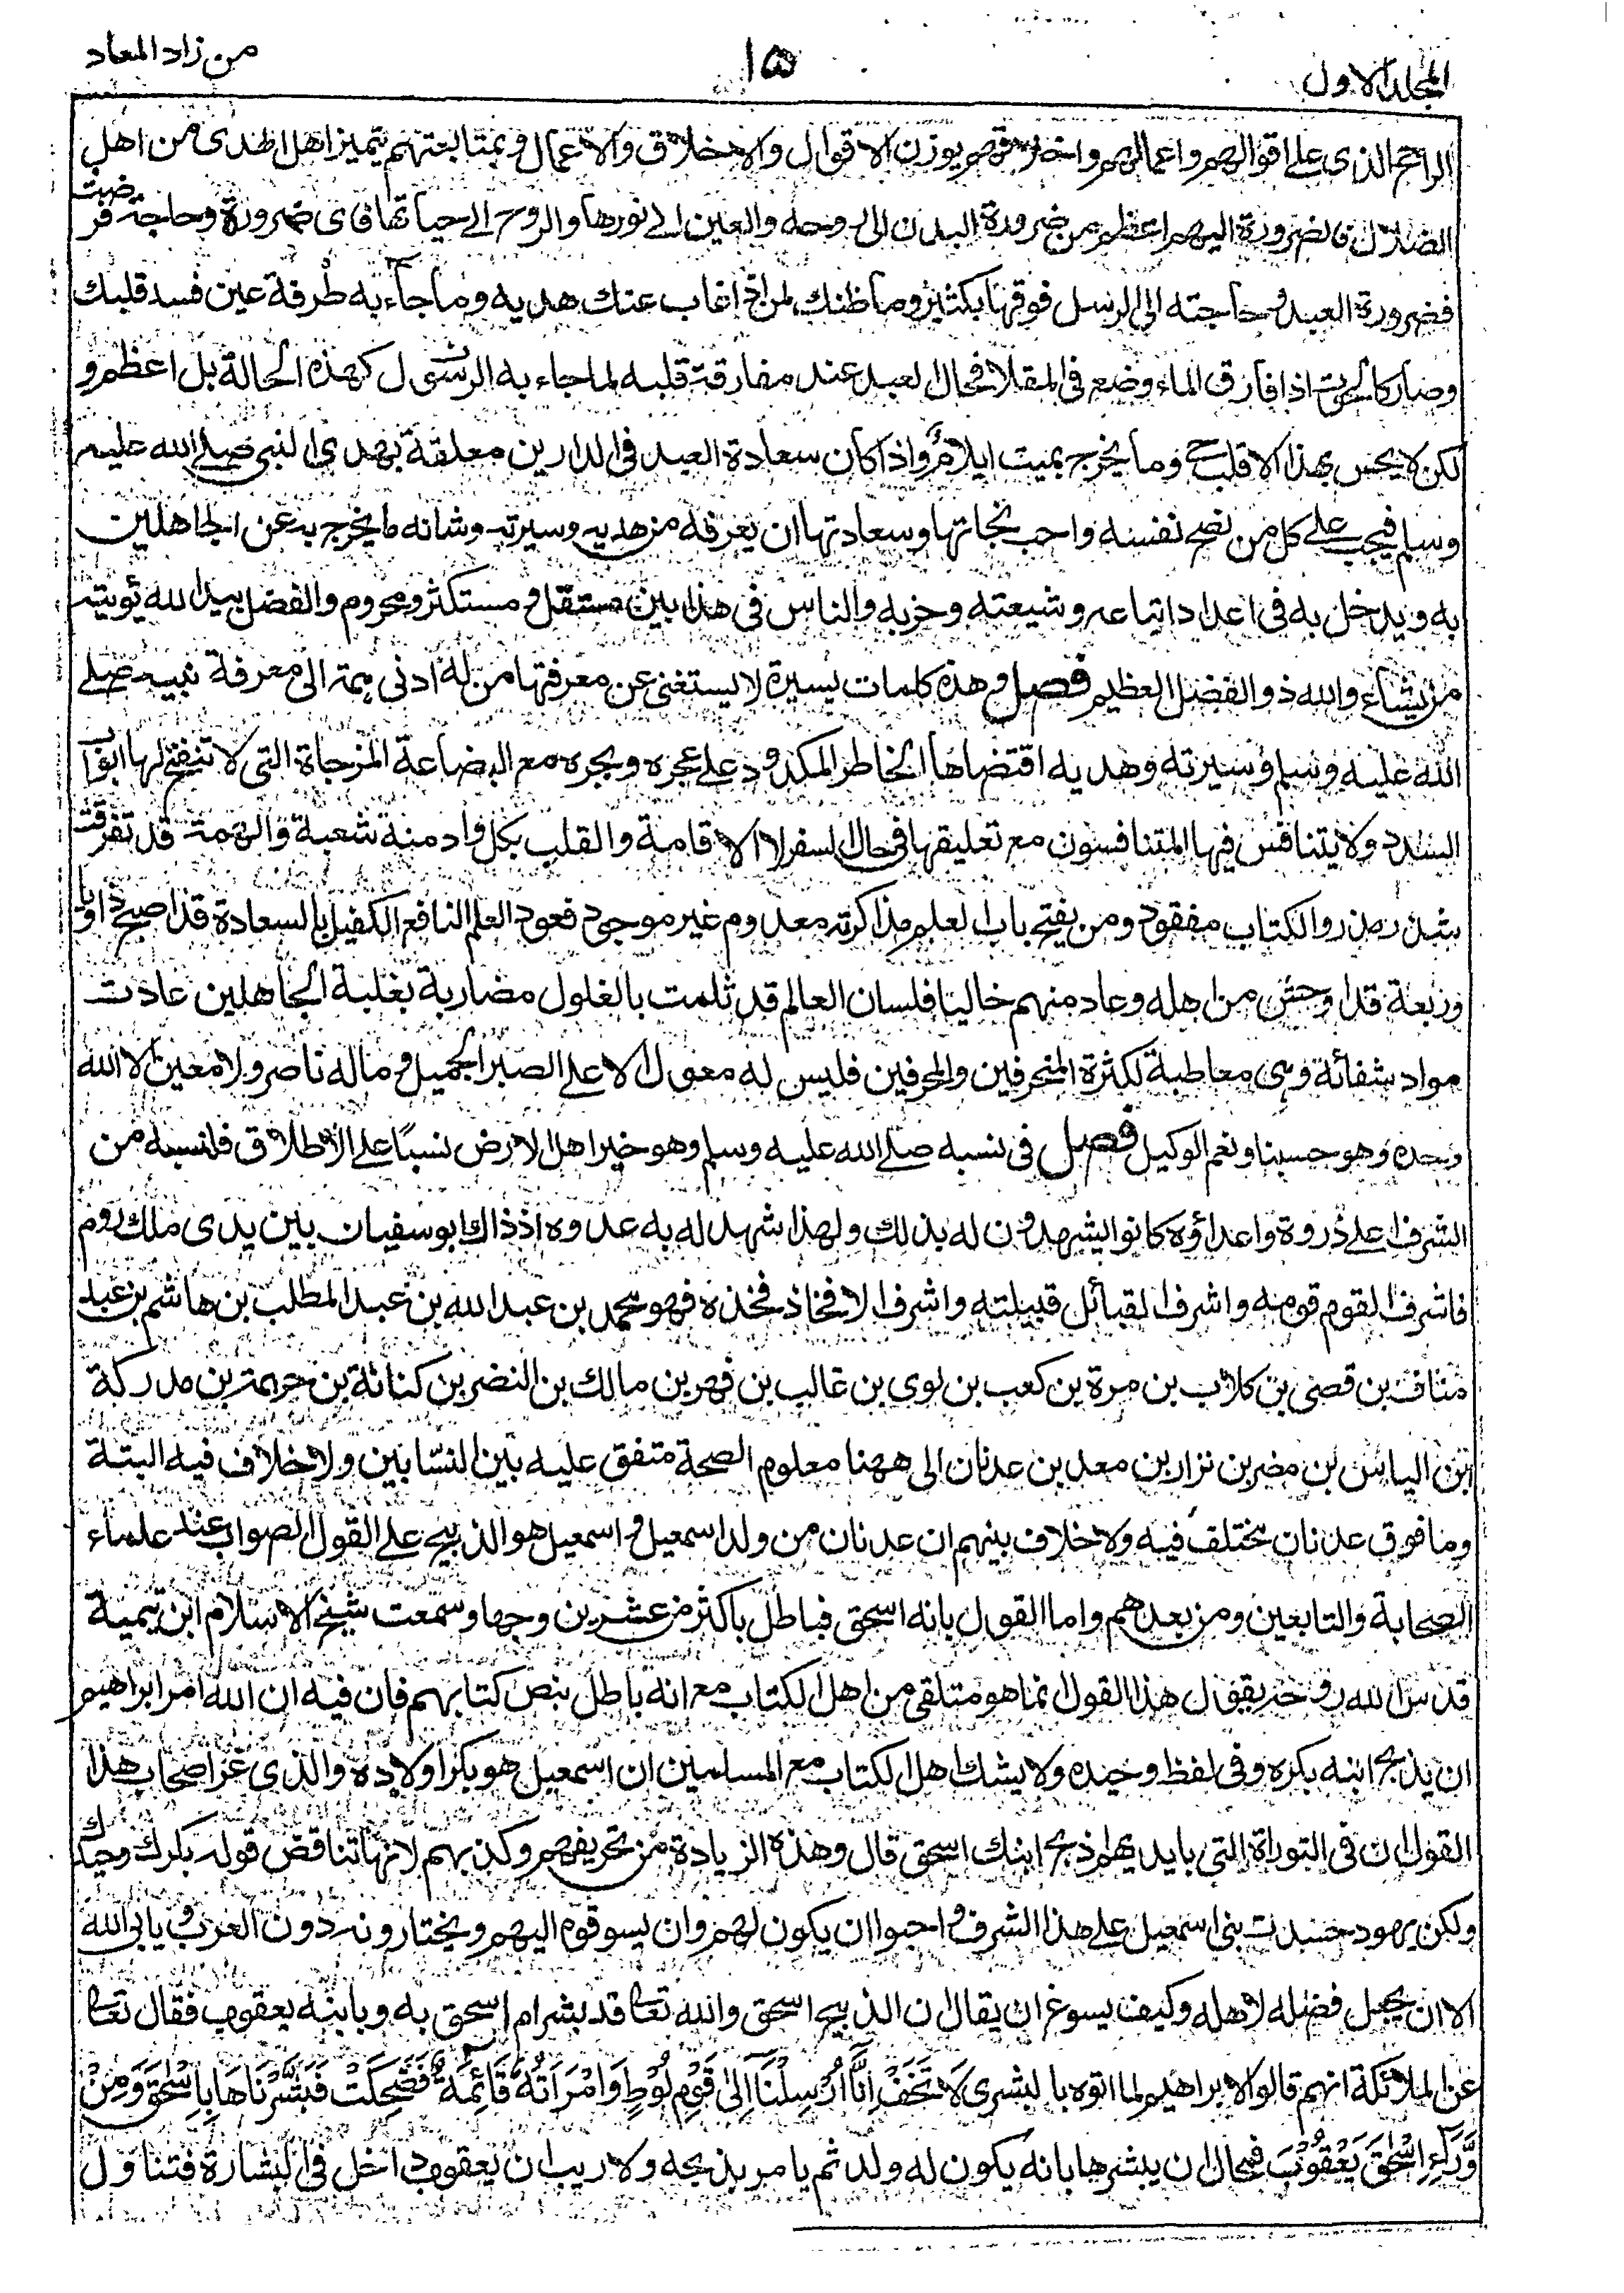 المجلد الاول
١٥
من زاد المعاد
الراجح الذى على اقوالهم واعمالهم واخلاقهم يوزن الاقوال والاخلاق والاعمال وبمتابعتهم يتميز اهل الهدى من اهل
الضلال فالضرورة اليهم اعظم من ضرورة البدن الى روحه والعين الى نورها والروح الى حياتها فاى ضرورة وحاجة فرضت
فضرورة العبد وحاجته الى الرسل فوقها بكثير وما ظنك لمن اذا غاب عنك هديه وما جاء به طرفة عين فسد قلبك
وصار كالحوت اذا فارق الماء وضع فى المقلاة فحال العبد عند مفارقة قلبه لما جاء به الرسول كهذه الحالة بل اعظم و
لكن لا يحس بهذا الا قلب حى وما يخرج بميت ايلام واذا كان سعادة العبد فى الدارين معلقة بهدى النبى صلى الله عليه
وسلم فيجب على كل من نصح نفسه واحب نجاتها وسعادتها ان يعرفه من هديه وسيرته وشانه ما يخرج به عن الجاهلين
به ويدخل به فى اعداد اتباعه وشيعته وحزبه والناس فى هذا بين مستقل ومستكثر ومحروم والفضل بيد الله يؤتيه
من يشاء والله ذو الفضل العظيم فصل وهذه كلمات يسيرة لا يستغنى عن معرفتها من له ادنى همة الى معرفة نبيه صلى
الله عليه وسلم وسيرته وهديه اقتضاها الخاطر المكدود على عجره وبجره مع البضاعة المزجاة التى لا تنفتح لها ابواب
السدد ولا يتنافس فيها المتنافسون مع تعليقها فى حال السفر لا الاقامة والقلب بكل واد منه شعبة والهمة قد تفرقت
شذر مذر والكتاب مفقود ومن يفتح باب العلم مذاكرته معدوم غير موجود فعود العلم النافع الكفيل بالسعادة قد اصبح ذاويا
وربعة قد اوحش من اهله وعاد منهم خاليا فلسان العالم قد ثلمت بالغلول مضاربة بغلبة الجاهلين عادت
مواد شفائة وهى معاطبة لكثرة المنحرفين والمحرفين فليس له معول الا على الصبر الجميل وماله ناصر ولا معين الا الله
وحده وهو حسبنا ونعم الوكيل فصل فى نسبه صلى الله عليه وسلم وهو خير اهل الارض نسبًا على الاطلاق فلنسبه من
الشرف اعلى ذروة واعداؤه كانوا يشهدون له بذلك ولهذا شهد له به عدوه اذ ذاك ابو سفيان بين يدى ملك روم
فاشرف القوم قومه واشرف القبائل قبيلته واشرف الافخاذ فخذه فهو محمد بن عبد الله بن عبد المطلب بن هاشم بن عبد
مناف بن قصى بن كلاب بن مرة بن كعب بن لوى بن غالب بن فهر بن مالك بن النضر بن كنانة بن خزيمة بن مدركة
ابن الياس بن مضر بن نزار بن معد بن عدنان الى ههنا معلوم الصحة متفق عليه بين النسابين ولا خلاف فيه البتة
وما فوق عدنان مختلف فيه ولا خلاف بينهم ان عدنان من ولد اسمعيل و اسمعيل هو الذبيح على القول الصواب عند علماء
الصحابة والتابعين ومن بعدهم واما القول بانه اسحق فباطل باكثر من عشرين وجها وسمعت شيخ الاسلام ابن تيمية
قدس الله روحه يقول هذا القول انما هو متلقى من اهل الكتاب مع انه باطل بنص كتابهم فان فيه ان الله امر ابراهيم
ان يذبح ابنه بكره وفى لفظ وحيده ولا يشك اهل الكتاب مع المسلمين ان اسمعيل هو بكر اولاده والذى غر اصحاب هذا
القول ان فى التوراة التى بايديهم اذبح ابنك اسحق قال وهذه الزيادة من تحريفهم وكذبهم لانها تناقض قوله بكرك وحيدك
ولكن يهود حسدت بنى اسمعيل على هذا الشرف و احبوا ان يكون لهم وان يسوقوه اليهم ويختارونه دون العرب ويابى الله
الا ان يجعل فضله لاهله وكيف يسوغ ان يقال ان الذبيح اسحق والله تعالى قد بشر ام اسحق به وبابنه يعقوب فقال تعالى
عن الملائكة انهم قالوا لابراهيم لما اتوه بالبشرى لَا تَخَفْ اِنَّا اُرْسِلْنَا اِلٰى قَوْمِ لُوْطٍ وَامْرَاَتُهٗ قَائِمَةٌ فَضَحِكَتْ فَبَشَّرْنَاهَا بِاِسْحٰقَ وَمِنْ
وَّرَاۤءِ اِسْحٰقَ يَعْقُوْبَ فمحال ان يبشرها بانه يكون له ولد ثم يامر بذبحه ولا ريب ان يعقوب داخل فى البشارة فتناول